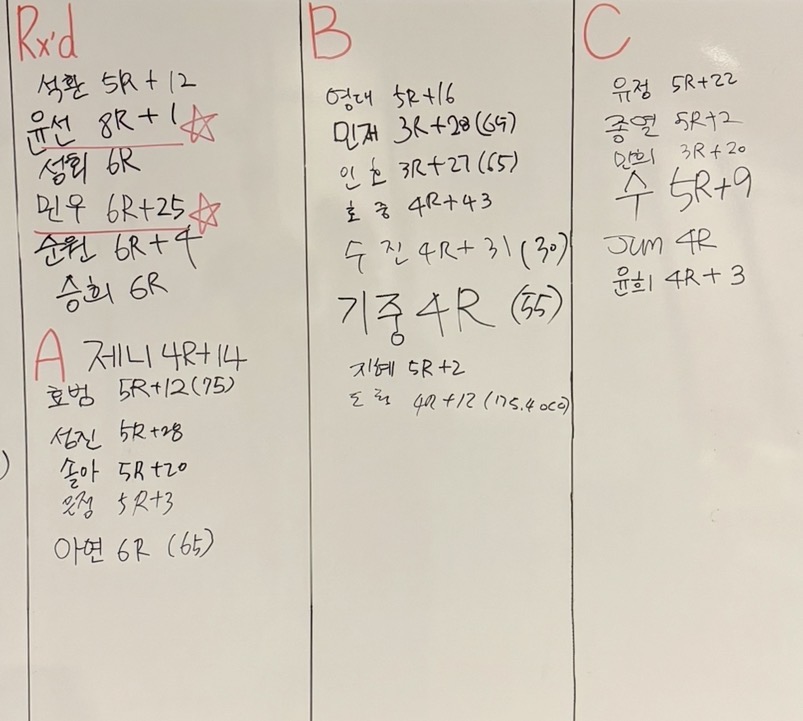 Rx'd
석환 5R+12
윤선 8R+1
성희 6R
민우 6R+25
순원 6R+4
승희 6R
A 제니 4R+14
효범 5R+12(75)
성진 5R+28
솔아 5R+20
은정 5R+3
아연 6R (65)
B
영대 5R+16
민제 3R+28(65)
인호 3R+27(65)
효중 4R+43
수진 4R+31(30)
기중 4R (55)
지혜 5R+2
4R+12
C
유정 5R+22
종열 5R+2
민희 3R+20
수 5R+9
Jum 4R
윤희 4R+3